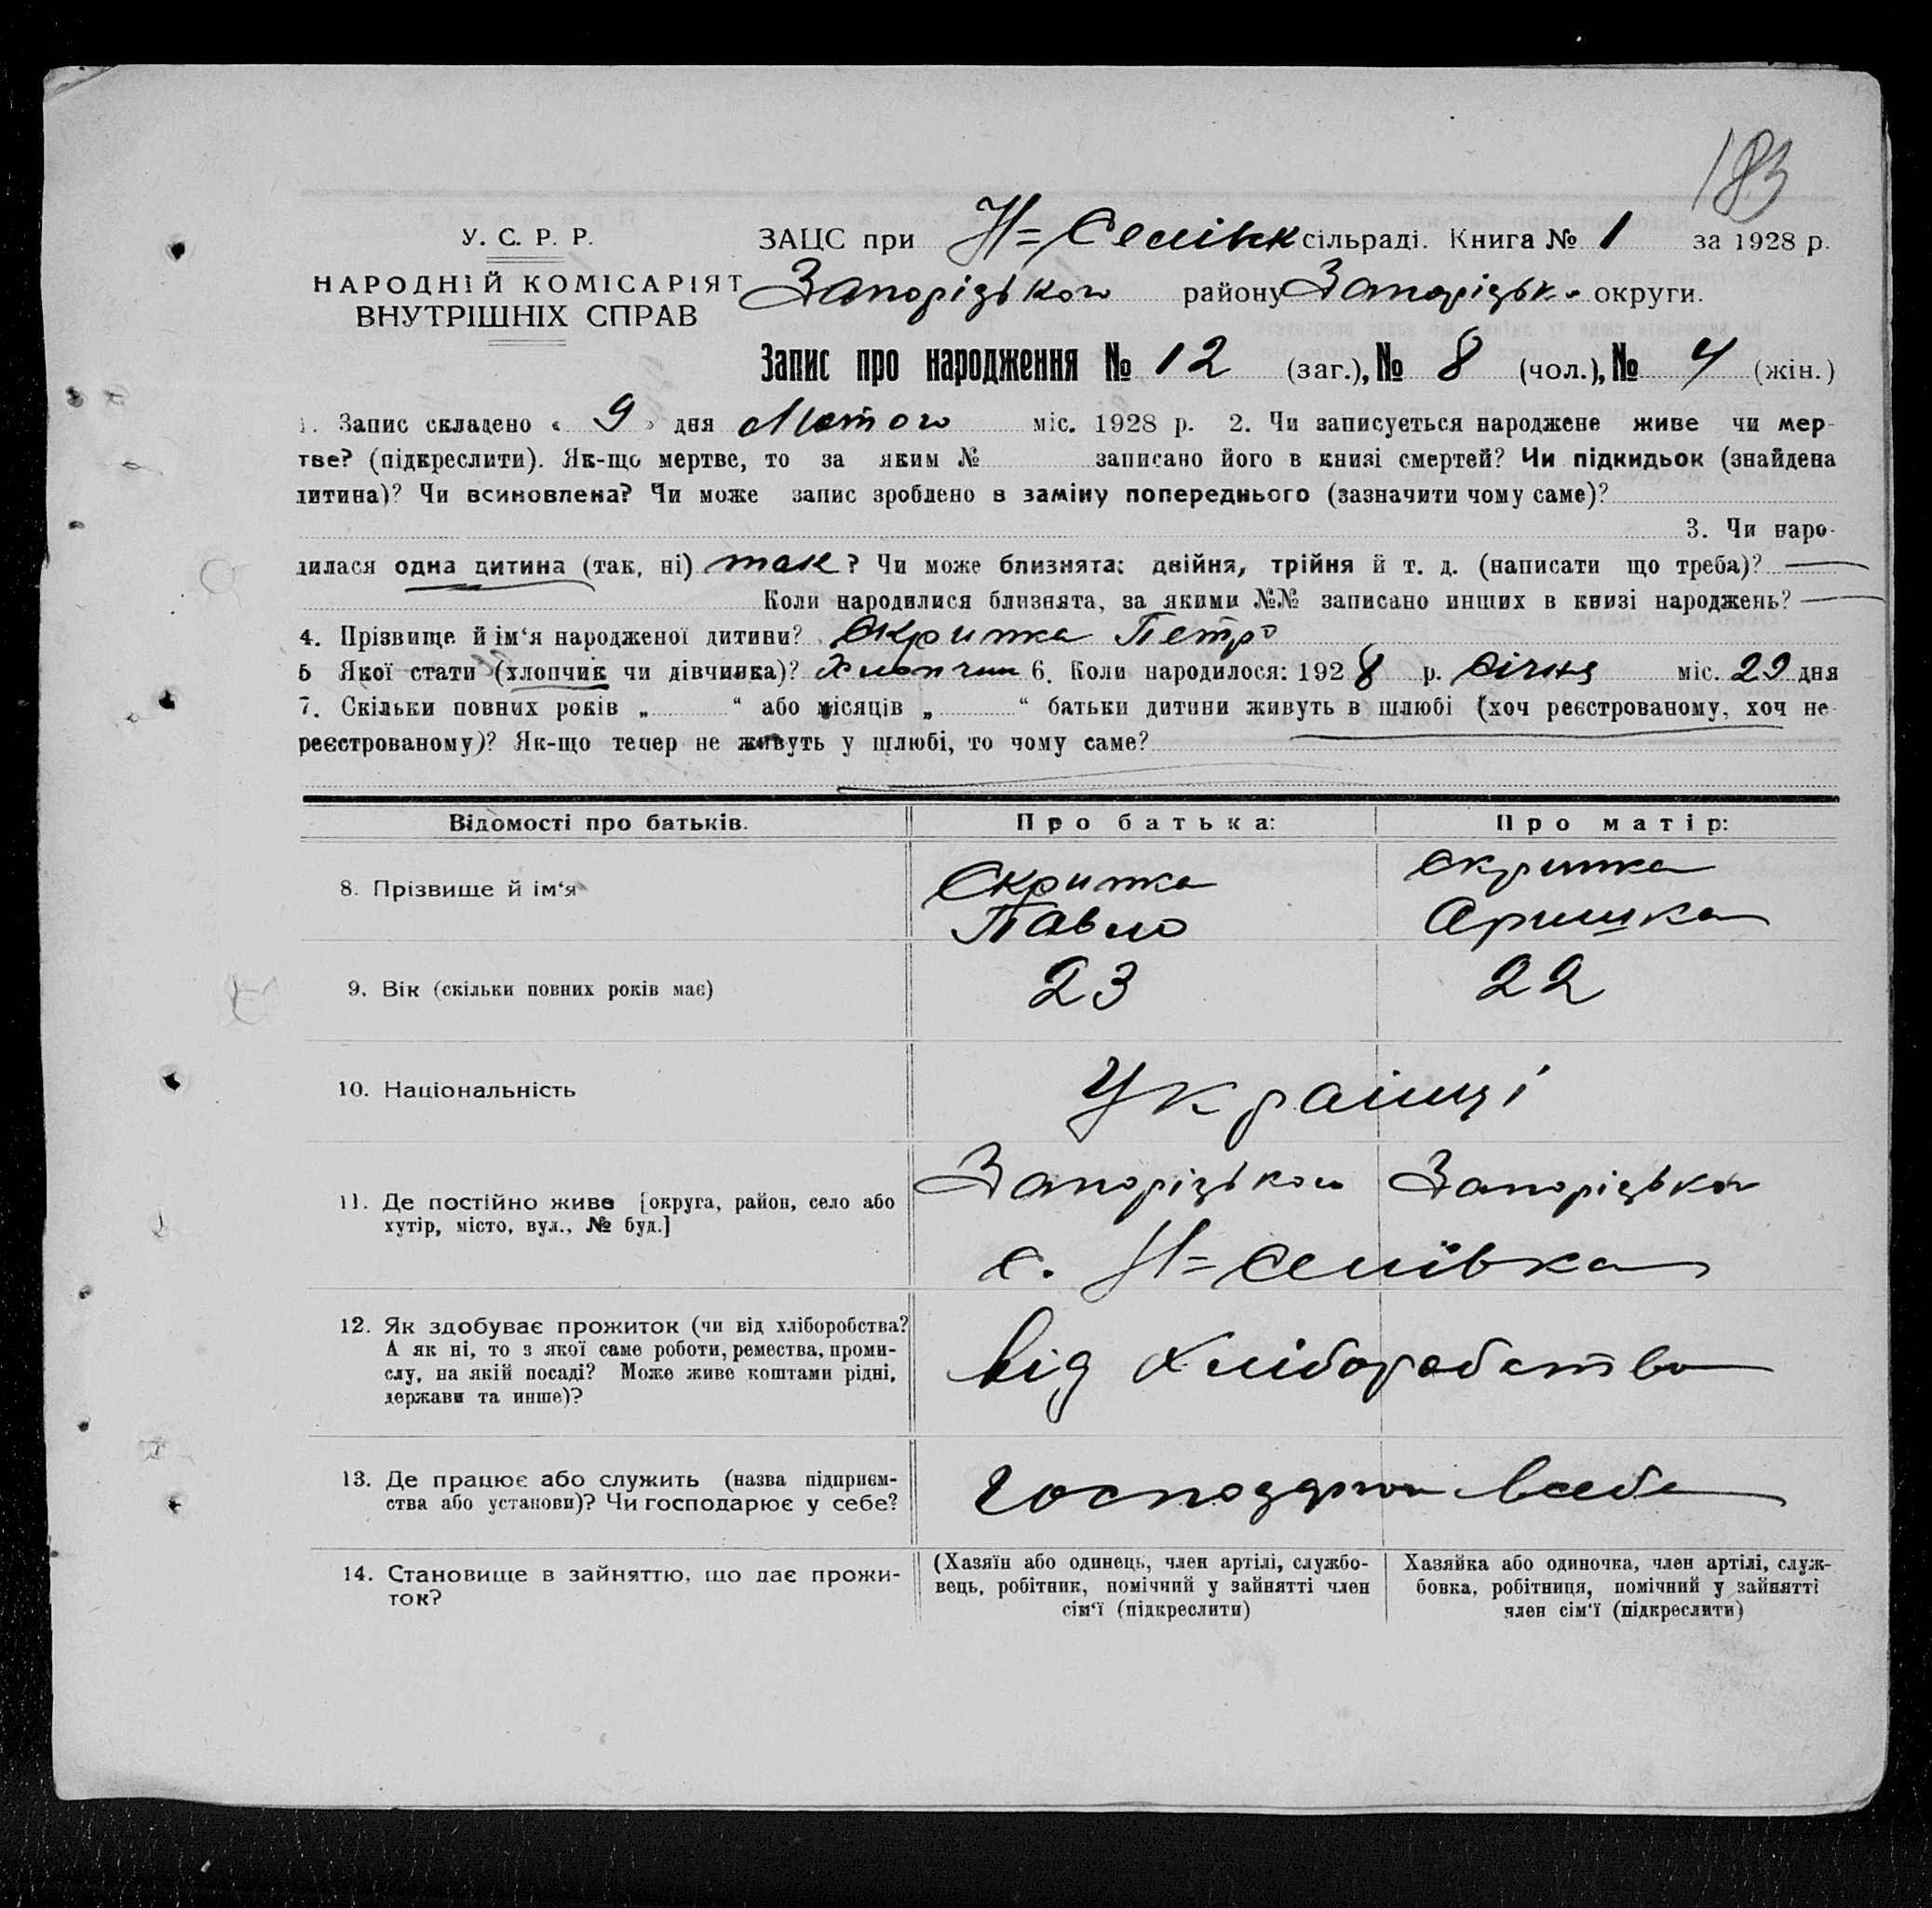 183
У. С. Р. Р.
НАРОДНІЙ КОМІСАРІЯТ
ВНУТРІШНІХ СПРАВ
ЗАЦС при Н=Семівк сільраді. Книга № 1 за 1928 р.
Запорізького району Запорізьк. округи.
Запис про народження № 12 (заг.), № 8 (чол.), № 4 (жін.)
1. Запис складено « 9 » дня Лютого міс. 1928 р. 2. Чи записується народжене живе чи мер-
тве? (підкреслити). Як-що мертве, то за яким № записано його в книзі смертей? Чи підкидьок (знайдена
дитина)? Чи всиновлена? Чи може запис зроблено в заміну попереднього (зазначити чому саме)?
3. Чи наро-
дилася одна дитина (так, ні) так? Чи може близнята: двійня, трійня й т. д. (написати що треба)? —
Коли народилися близнята, за якими №№ записано инших в книзі народжень? —
4. Прізвище й ім‘я народженої дитини? Скрипка Петро
5 Якої стати (хлопчик чи дівчинка)? Хлопчик 6. Коли народилося: 1928 р. Січня міс. 29 дня
7. Скільки повних років „ “ або місяців „ “ батьки дитини живуть в шлюбі (хоч реєстрованому, хоч не-
реєстрованому)? Як-що тепер не живуть у шлюбі, то чому саме?
Відомості про батьків. Про батька: Про матір:
8. Прізвище й ім‘я Скрипка Скрипка
Павло Оришка
9. Вік (скільки повних років має) 23 22
10. Національність Українці
11. Де постійно живе [округа, район, село або Запорізького Запорізького
хутір, місто, вул., № буд.] с. Н=Семівка
12. Як здобуває прожиток (чи від хліборобства?
А як ні, то з якої саме роботи, ремества, проми-
слу, на якій посаді? Може живе коштами рідні,
держави та инше)?
від хліборобства
13. Де працює або служить (назва підприєм-
ства або установи)? Чи господарює у себе?
14. Становище в зайняттю, що дає прожи-
ток?
(Хазяїн або одинець, член артілі, службо-
вець, робітник, помічний у зайнятті член
сім‘ї (підкреслити)
Хазяйка або одиночка, член артілі, служ-
бовка, робітниця, помічний у зайнятті
член сім‘ї (підкреслити)